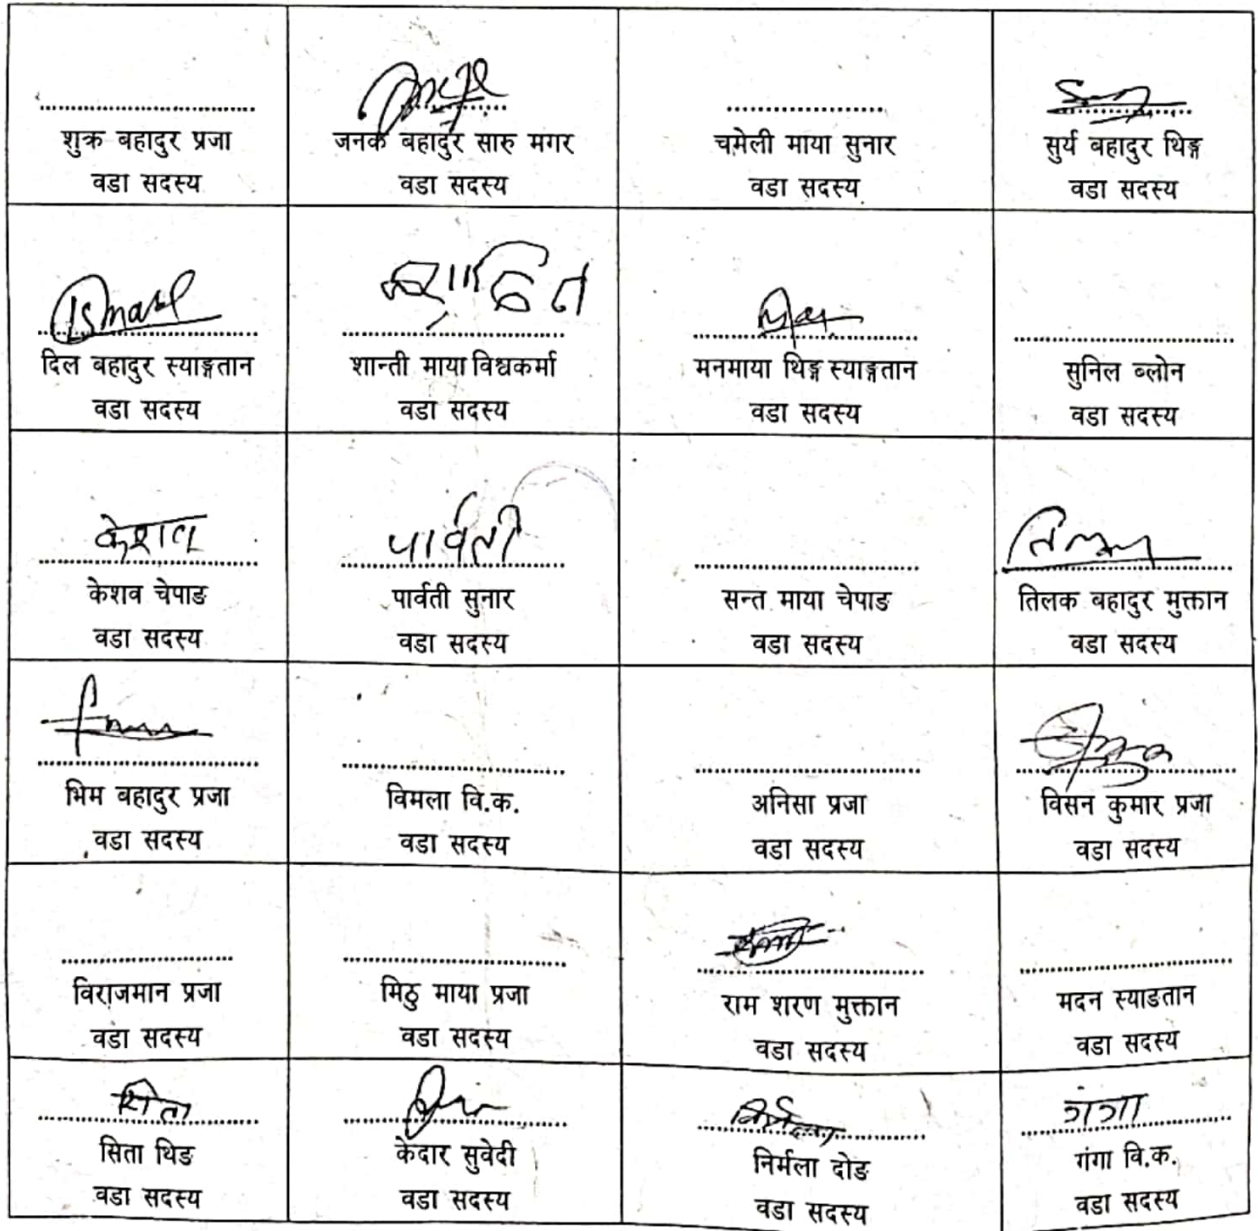 शुक्र बहादुर प्रजा
वडा सदस्य
जनक बहादुर सारु मगर
वडा सदस्य
चमेली माया सुनार
वडा सदस्य
सुर्य बहादुर थिङ्ग
वडा सदस्य
दिल बहादुर स्याङ्गतान
वडा सदस्य
शान्ती माया विश्वकर्मा
वडा सदस्य
मनमाया थिङ्ग स्याङ्गतान
वडा सदस्य
सुनिल ब्लोन
वडा सदस्य
केशव
केशव चेपाङ
वडा सदस्य
पार्वती
पार्वती सुनार
वडा सदस्य
सन्त माया चेपाङ
वडा सदस्य
तिलक बहादुर मुक्तान
वडा सदस्य
भिम बहादुर प्रजा
वडा सदस्य
विमला वि.क.
वडा सदस्य
अनिसा प्रजा
वडा सदस्य
विसन कुमार प्रजा
वडा सदस्य
विराजमान प्रजा
वडा सदस्य
मिठु माया प्रजा
वडा सदस्य
राम शरण मुक्तान
वडा सदस्य
मदन स्याङतान
वडा सदस्य
सिता
सिता थिङ
वडा सदस्य
केदार सुवेदी
वडा सदस्य
निर्मला दोङ
वडा सदस्य
गंगा
गंगा वि.क.
वडा सदस्य